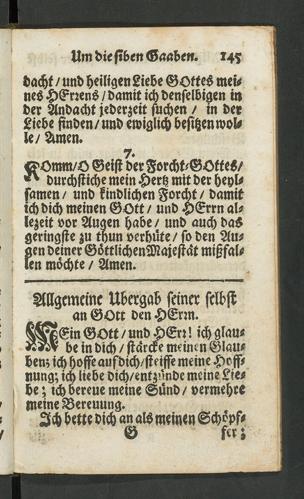 Um die siben Gaaben. 145
dacht / und heiligen Liebe GOttes mei-
nes HErrens / damit ich denselbigen in
der Andacht jederzeit suchen / in der
Liebe finden / und ewiglich besitzen wol-
le / Amen.
7.
KOmm / O Geist der Forcht-GOttes /
durchstiche mein Hertz mit der heyl-
samen / und kindlichen Forcht / damit
ich dich meinen GOtt / und HErrn al-
lezeit vor Augen habe / und auch das
geringste zu thun verhüte / so den Au-
gen deiner Göttlichen Majestät mißfal-
len möchte / Amen.
Allgemeine Ubergab seiner selbst
an GOtt den HErrn.
MEin GOtt / und HErr! ich glau-
be in dich / stärcke meinen Glau-
ben; ich hoffe auf dich / steiffe meine Hoff-
nung; ich liebe dich / entzünde meine Lie-
be; ich bereue meine Sünd / vermehre
meine Bereuung.
Ich bette dich an als meinen Schöpf-
G fer;